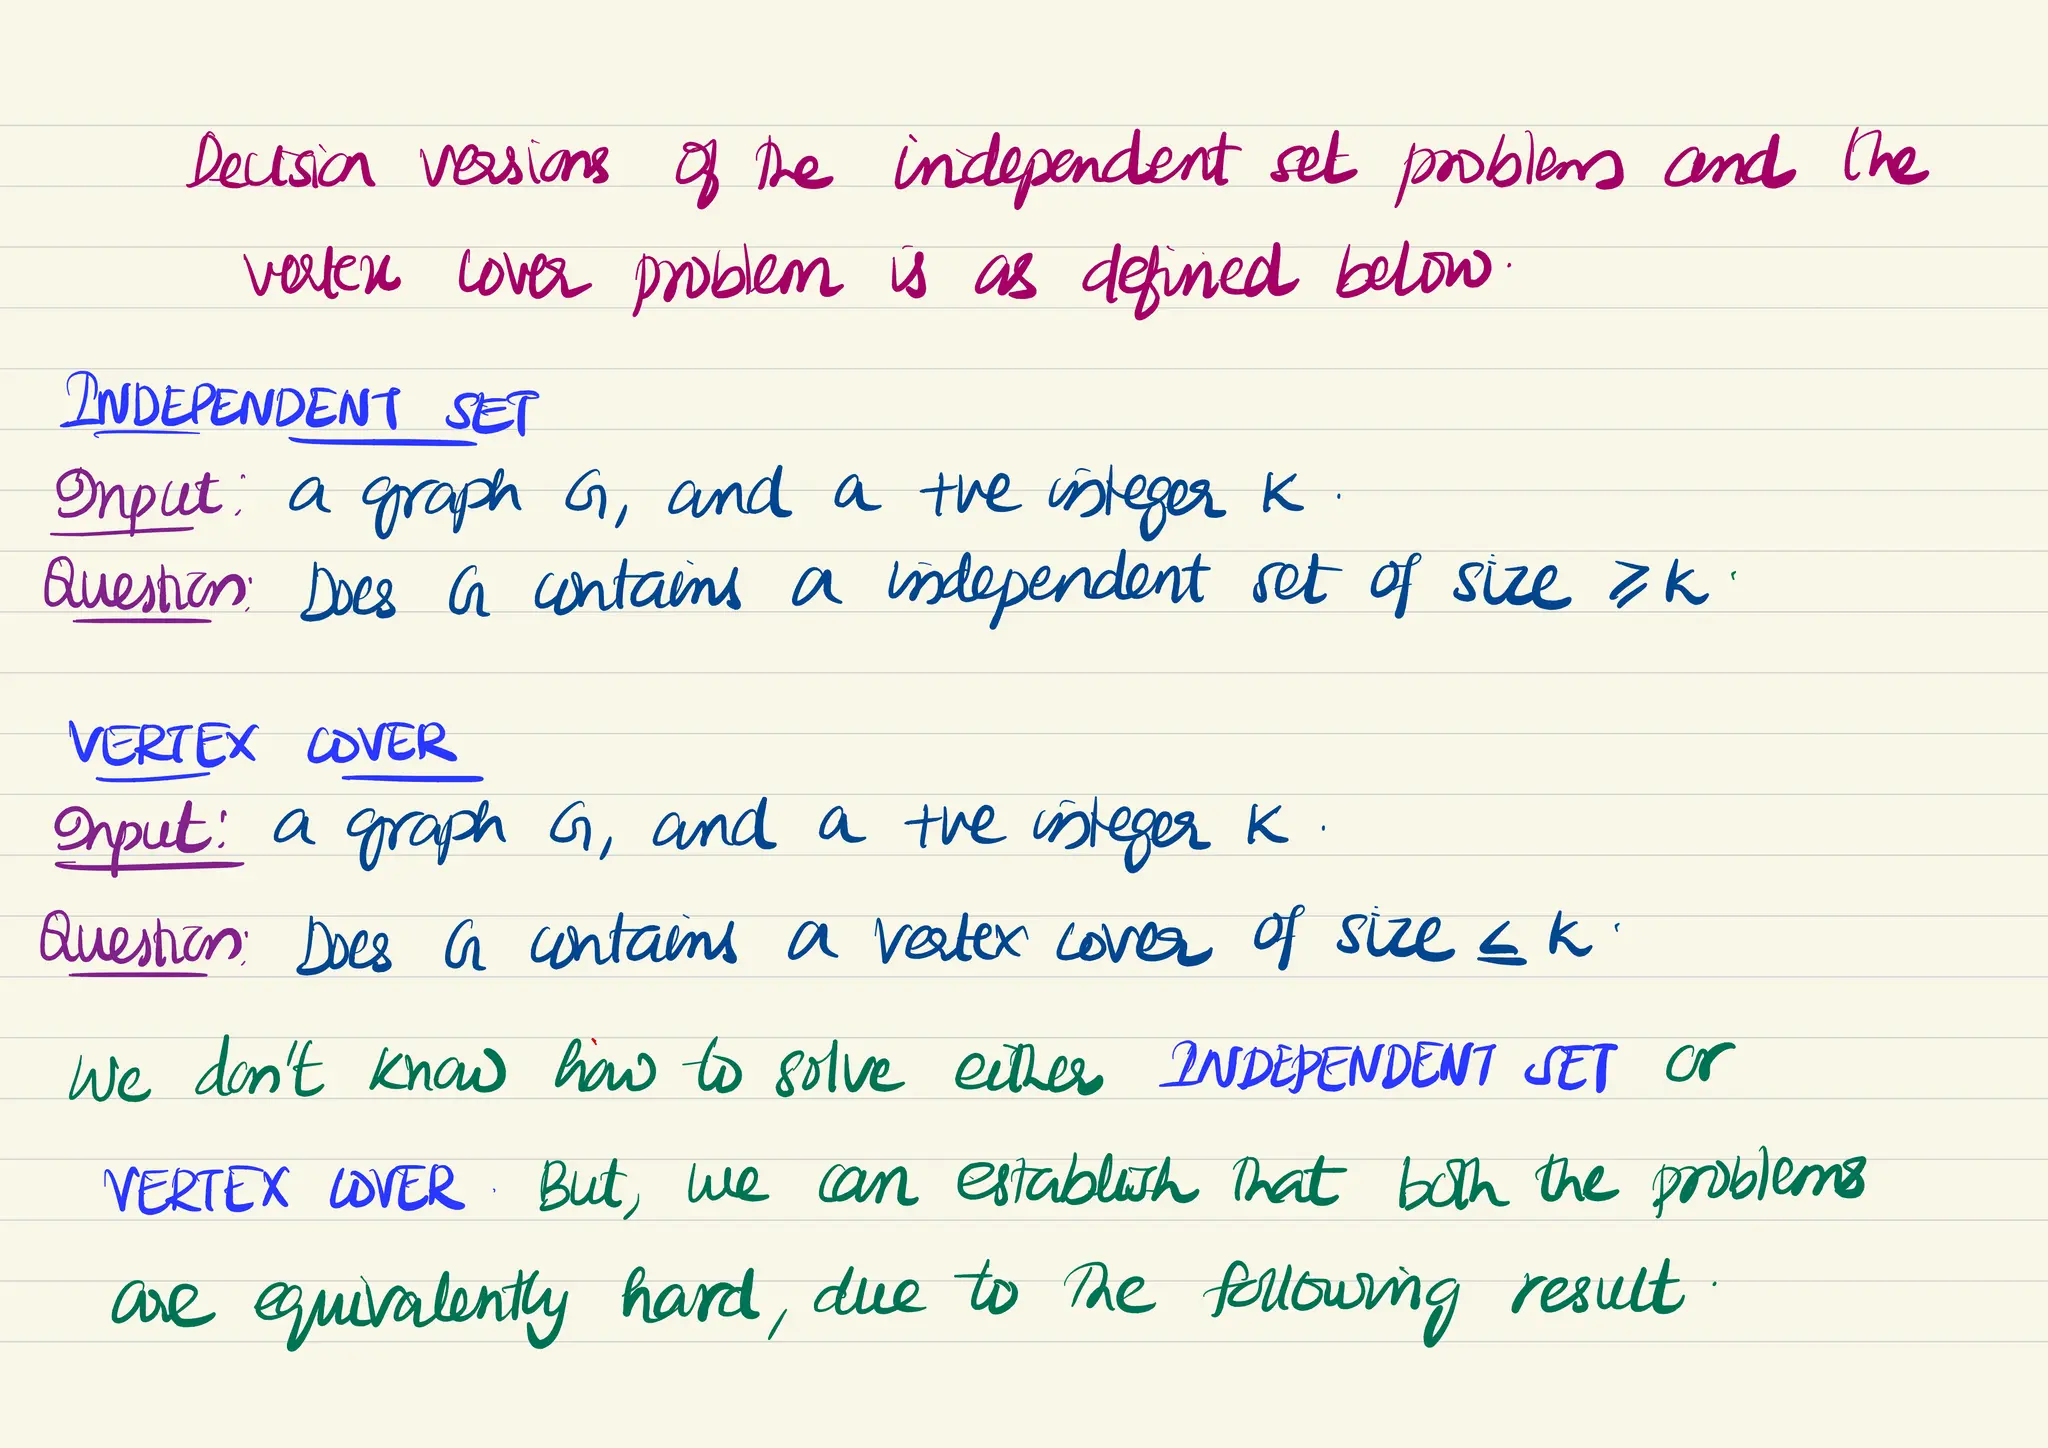 Decision versions of the independent set problems and the
vertex cover problem is as defined below.
INDEPENDENT SET
Input: a graph G, and a +ve integer K.
Question: Does G contains a independent set of size ≥ K.
VERTEX COVER
Input: a graph G, and a +ve integer K.
Question: Does G contains a vertex cover of size ≤ K.
We don't know how to solve either INDEPENDENT SET or
VERTEX COVER. But, we can establish that both the problems
are equivalently hard, due to the following result.